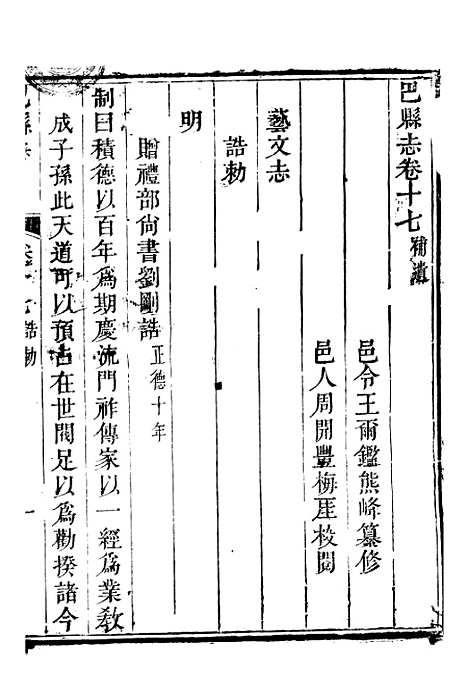 巴縣志卷十七 補遺
邑令王爾鑑熊峰纂修
邑人周開豐梅厓校閱
藝文志
誥勅
明
贈禮部尚書劉剛誥 正德十年
制曰積德以百年爲期慶流門祚傳家以一經爲業敎
成子孫此天道可以預占在世閥足以爲勸揆諸今
誥勅
一